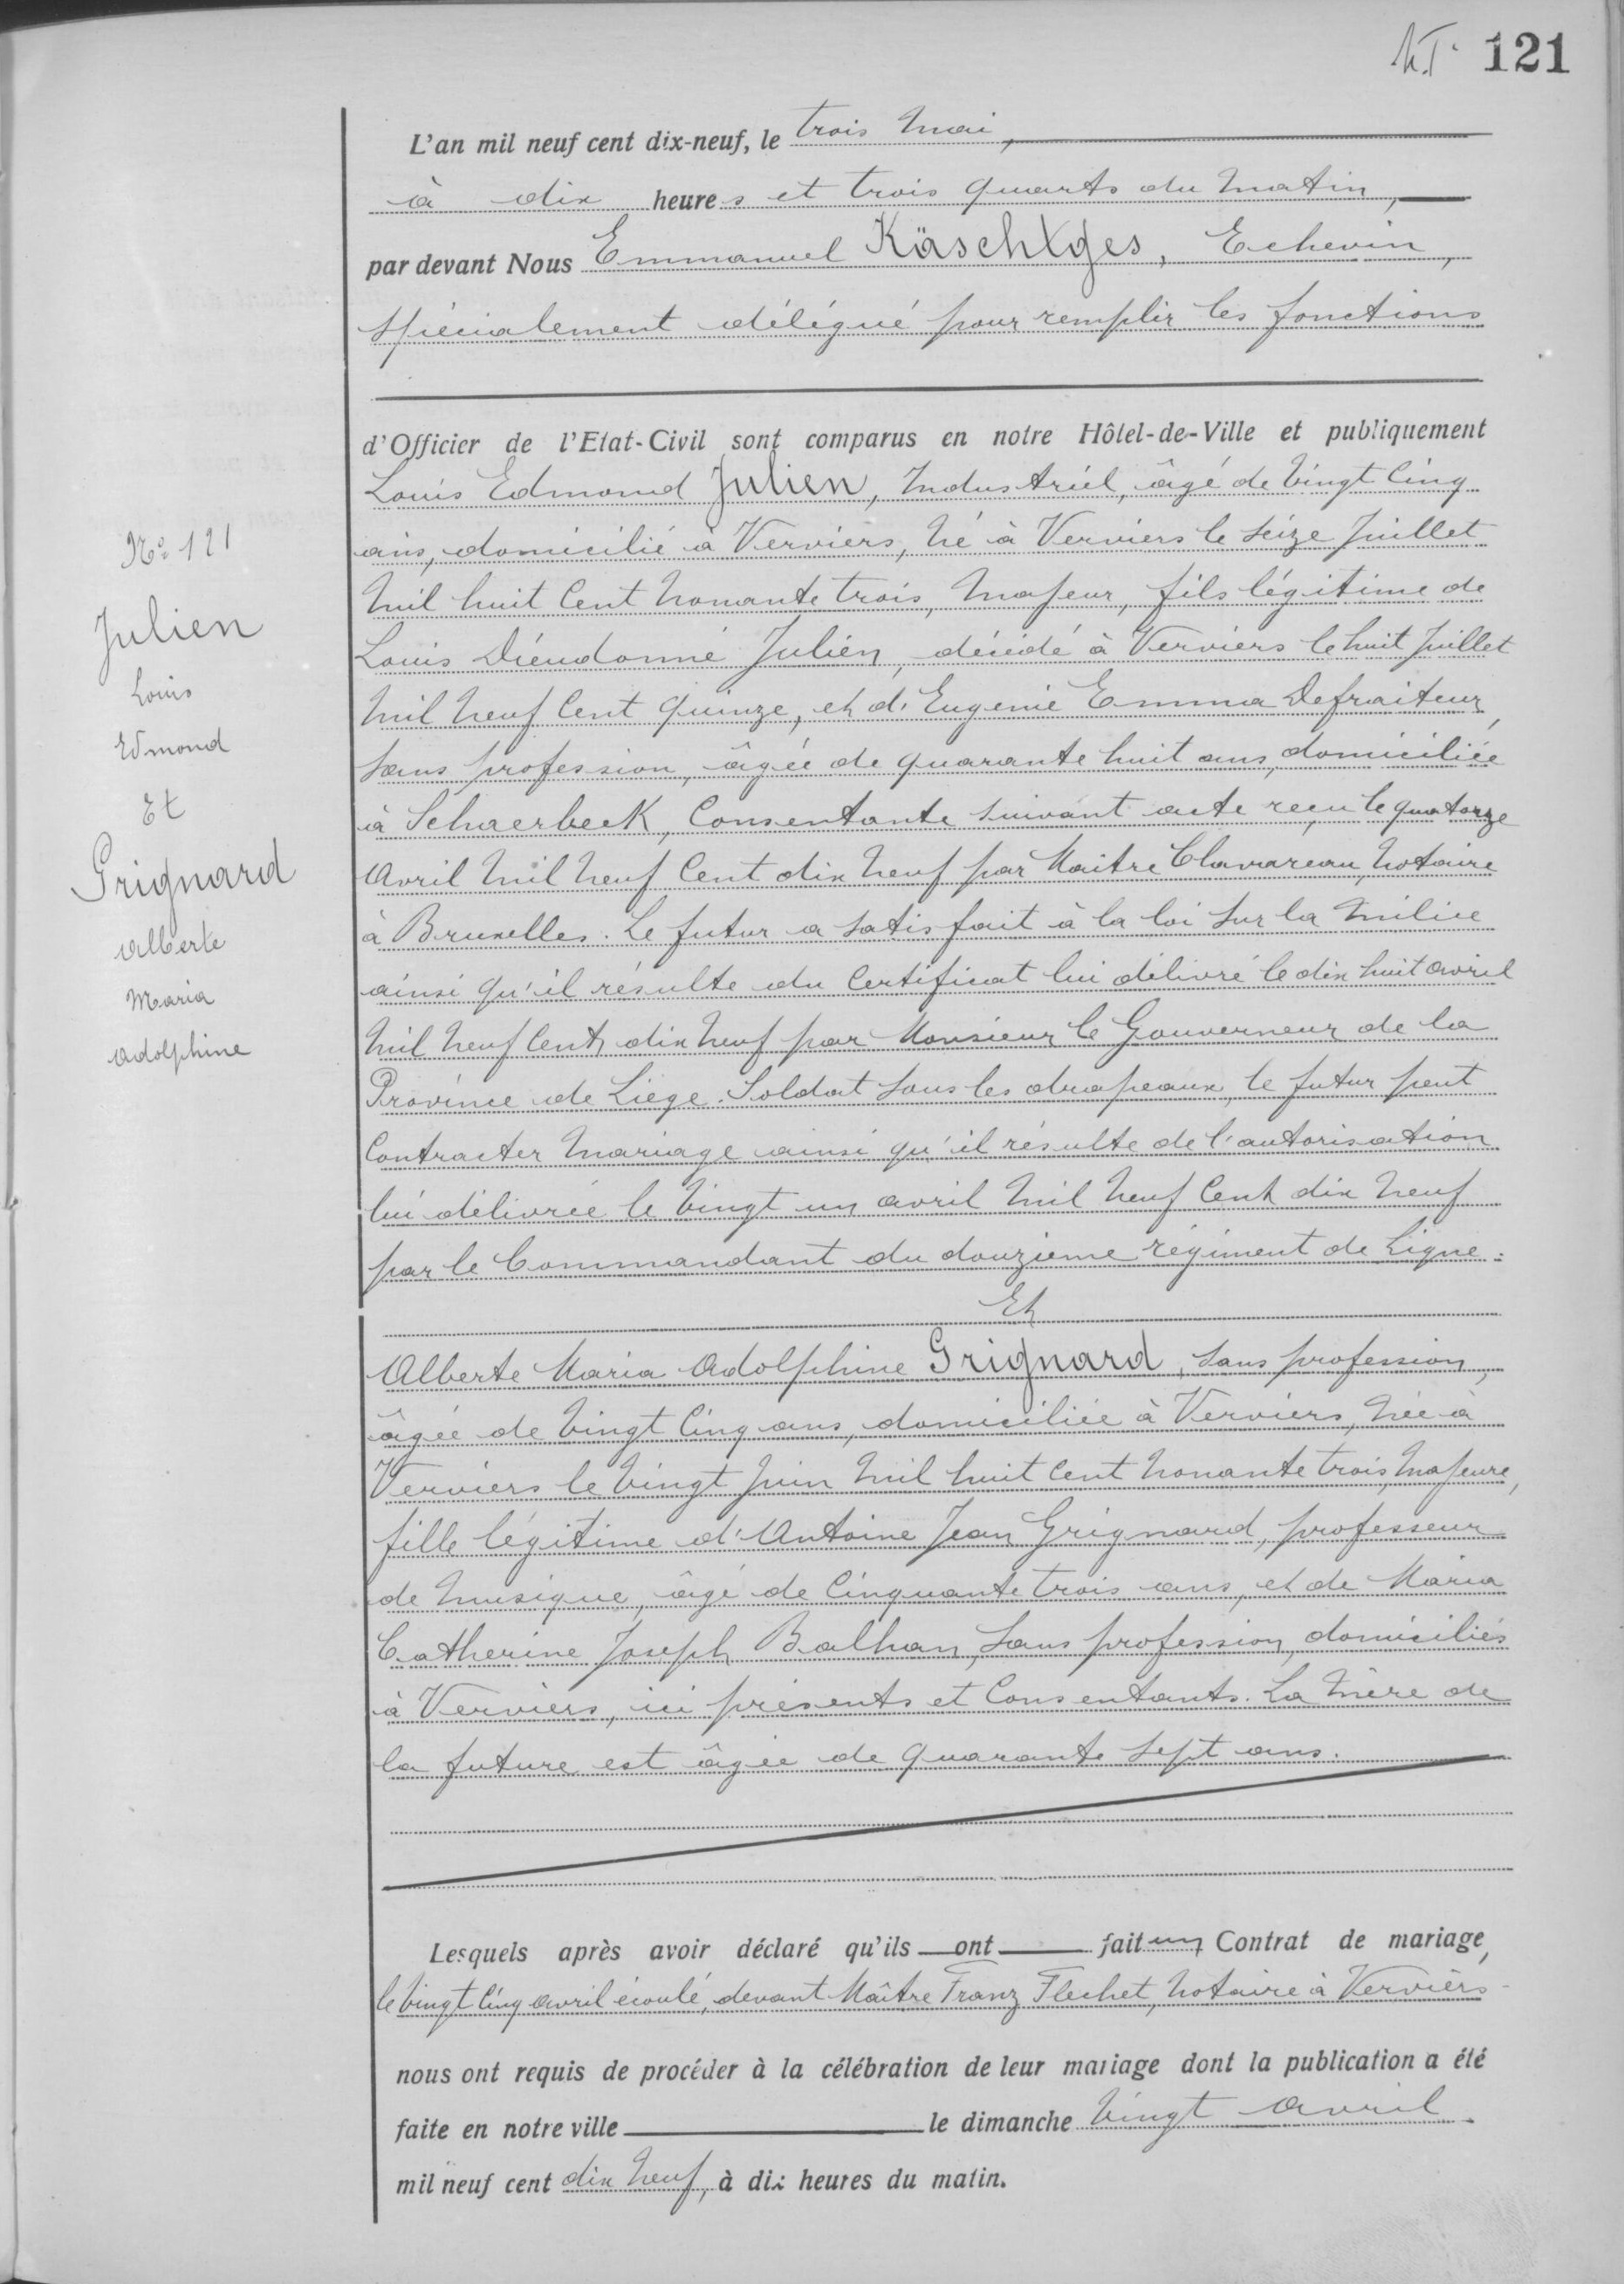 121
L'an mil neuf cent dix-neuf, le trois Mai,
à dix heures et trois quarts du Matin,
par devant Nous Emmanuel Käschtges, Echevin,
spécialement délégué pour remplir les fonctions
d'Officier de l'Etat-Civil sont comparus en notre Hôtel-de-Ville et publiquement
Louis Edmond Julien, Industriel, âgé de Vingt Cinq
ans, domicilié à Verviers, né à Verviers le seize Juillet
Mil huit Cent Nonante trois, Majeur, fils légitime de
Louis Dieudonné Julien, décédé à Verviers le huit Juillet
Mil Neuf Cent Quinze, et d'Eugenie Emma Defraiteur,
sans profession, âgée de quarante huit ans, domiciliée
à Schaerbeek, Consentante suivant acte reçu le quatorze
Avril Mil Neuf Cent dix Neuf par Maitre Clavareau, Notaire
à Bruxelles. Le futur a satisfait à la loi sur la Milice
ainsi qu'il résulte du Certificat lui délivré le dix huit avril
Mil Neuf Cent dix Neuf par Monsieur le Gouverneur de la
Province de Liège. Soldat sous les drapeaux, le futur peut
Contracter Mariage ainsi qu'il résulte de l'autorisation
lui délivrée le Vingt un avril Mil Neuf Cent dix Neuf
par le Commandant du douzieme régiment de Ligne.
Et
Alberte Maria Adolphine Grignard, sans profession,
âgée de Vingt Cinq ans, domiciliée à Verviers, Née à
Verviers le Vingt Juin Mil huit Cent Nonante trois, Majeure,
fille légitime d'Antoine Jean Grignard, professeur
de Musique, âgé de Cinquante trois ans, et de Maria
Catherine Joseph Balhan, sans profession, domiciliés
à Verviers, ici présents et Consentants. La Mère de
la future est âgée de quarante sept ans.
Lesquels après avoir déclaré qu'ils ont fait un Contrat de mariage,
le Vingt Cinq avril écoulé, devant Maître Franz Flechet, Notaire à Verviers
nous ont requis de procéder à la célébration de leur mariage dont la publication a été
faite en notre ville le dimanche Vingt Avril
mil neuf cent dix Neuf, à dix heures du matin.
No 121
Julien
Louis
Edmond
Et
Grignard
Alberte
Maria
Adolphine